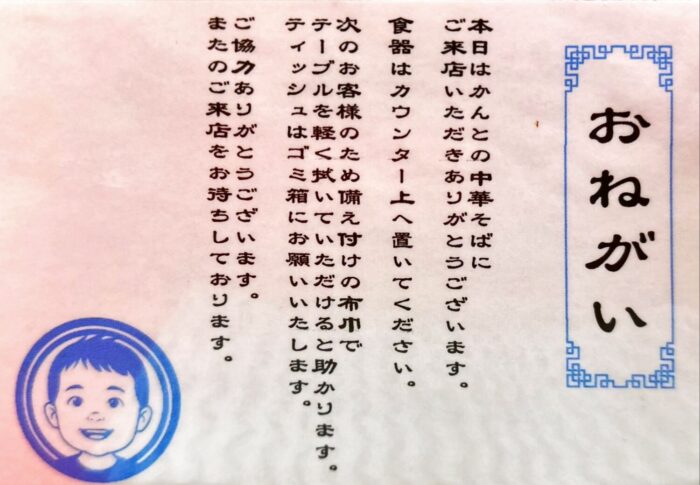 おねがい
本日はかんとの中華そばに
ご来店いただきありがとうございます。
食器はカウンター上へ置いてください。
次のお客様のため備え付けの布巾で
テーブルを軽く拭いていただけると助かります。
ティッシュはゴミ箱にお願いいたします。
ご協力ありがとうございます。
またのご来店をお待ちしております。